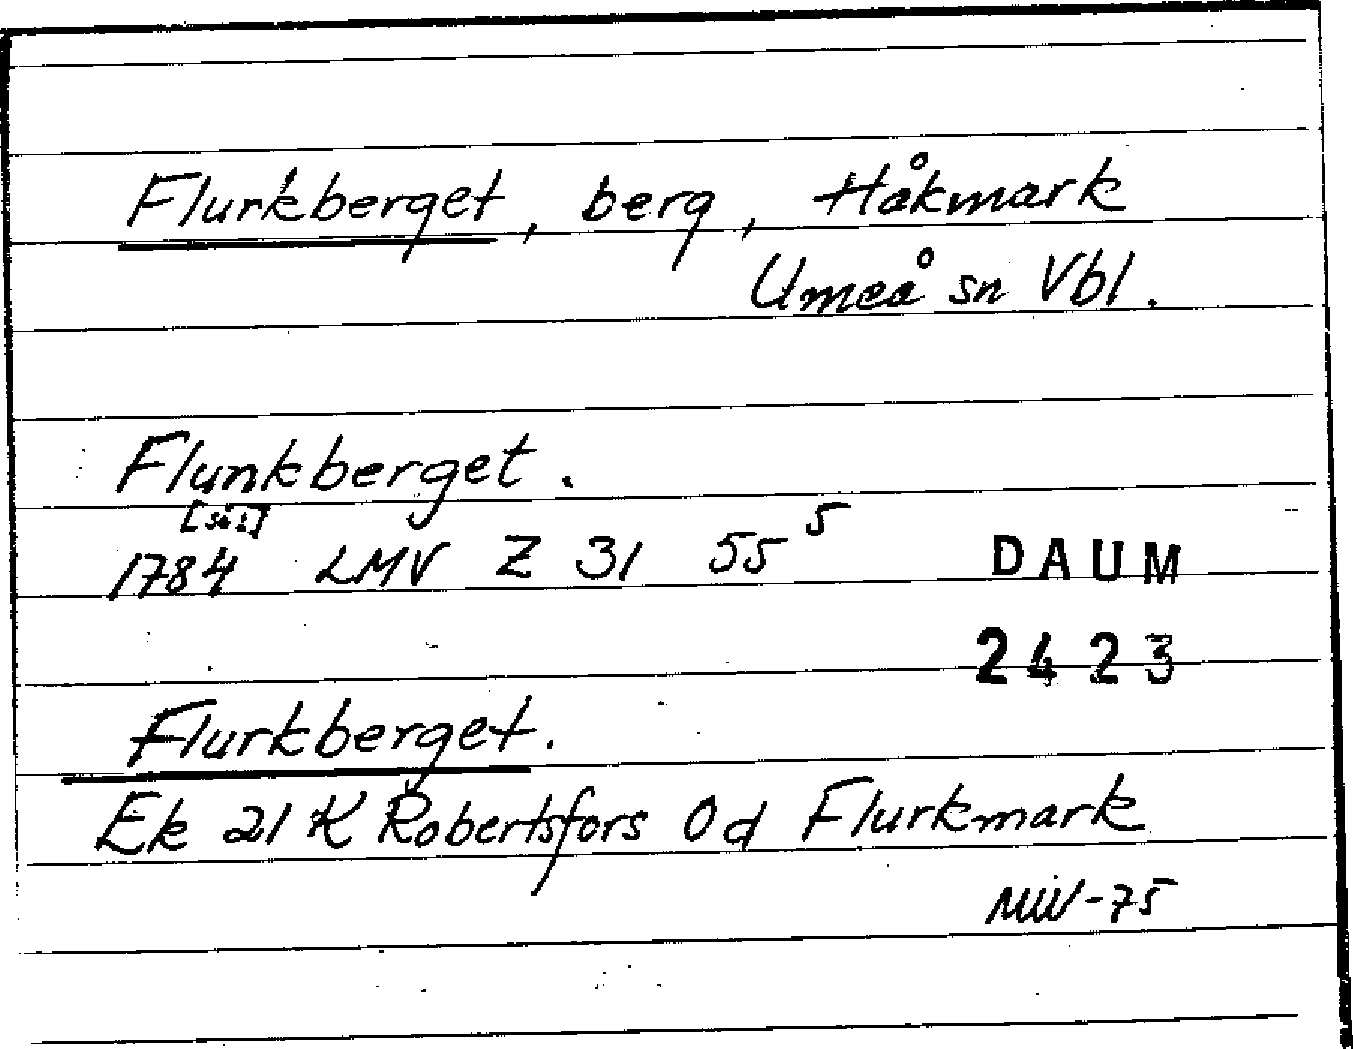 Flurkberget, berg, Håkmark
Umeå sn Vbl.
Flunkberget.
[sic!]
1784 LMV Z 31 55⁵
DAUM
2423
Flurkberget.
Ek 21 K Robertsfors 0d Flurkmark
MW-75